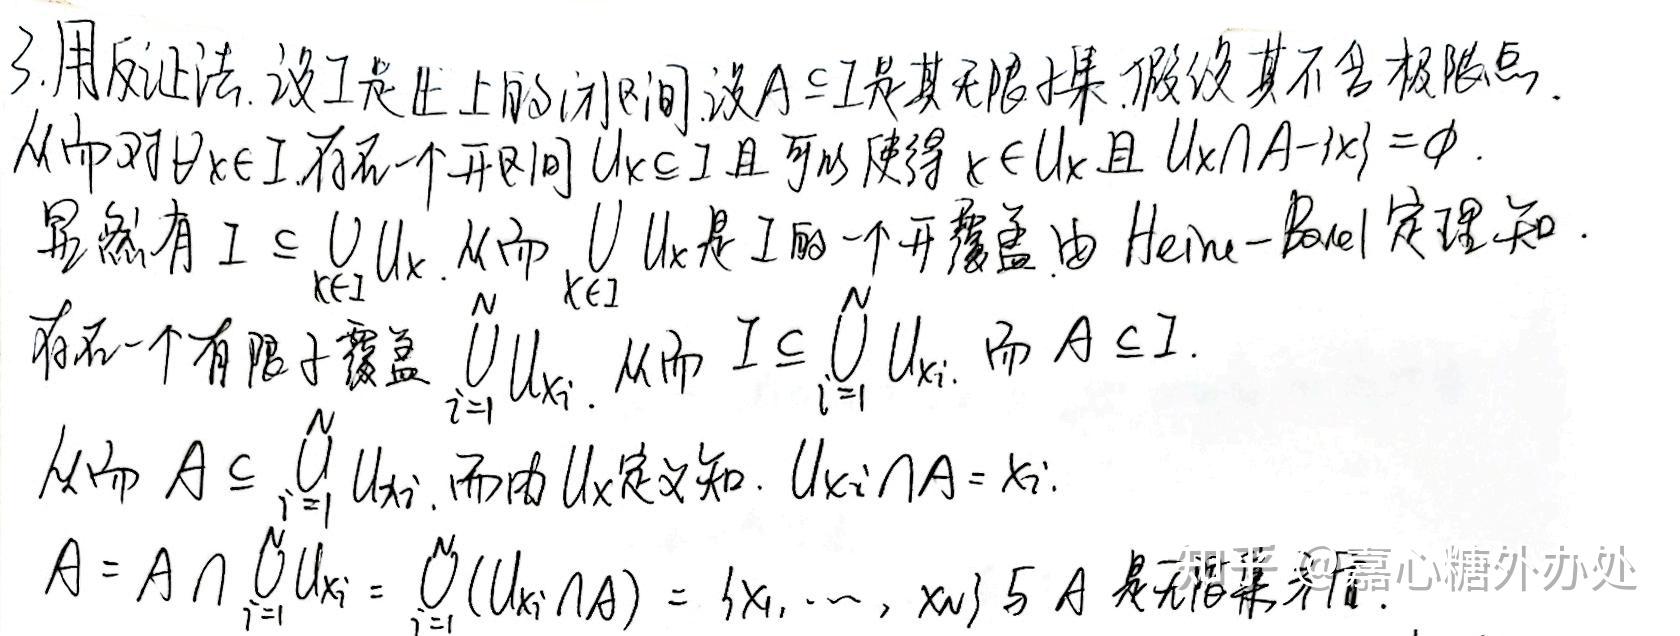 3.用反证法.设I是E上的闭区间.设A⊆I是其无限子集.假设其不含极限点.
从而对∀x∈I.存在一个开区间Ux⊆I且可以使得x∈Ux且Ux∩A-{x}=φ.
显然有I⊆⋃_{x∈I}Ux.从而⋃_{x∈I}Ux是I的一个开覆盖.由Heine-Borel定理知.
存在一个有限子覆盖⋃_{i=1}^{N}U_{xi}.从而I⊆⋃_{i=1}^{N}U_{xi}.而A⊆I.
从而A⊆⋃_{i=1}^{N}U_{xi}.而由Ux定义知.U_{xi}∩A=xi.
A=A∩⋃_{i=1}^{N}U_{xi}=⋃_{i=1}^{N}(U_{xi}∩A)={x1,…,xN}与A是无限集矛盾.
知乎 @嘉心糖外办处